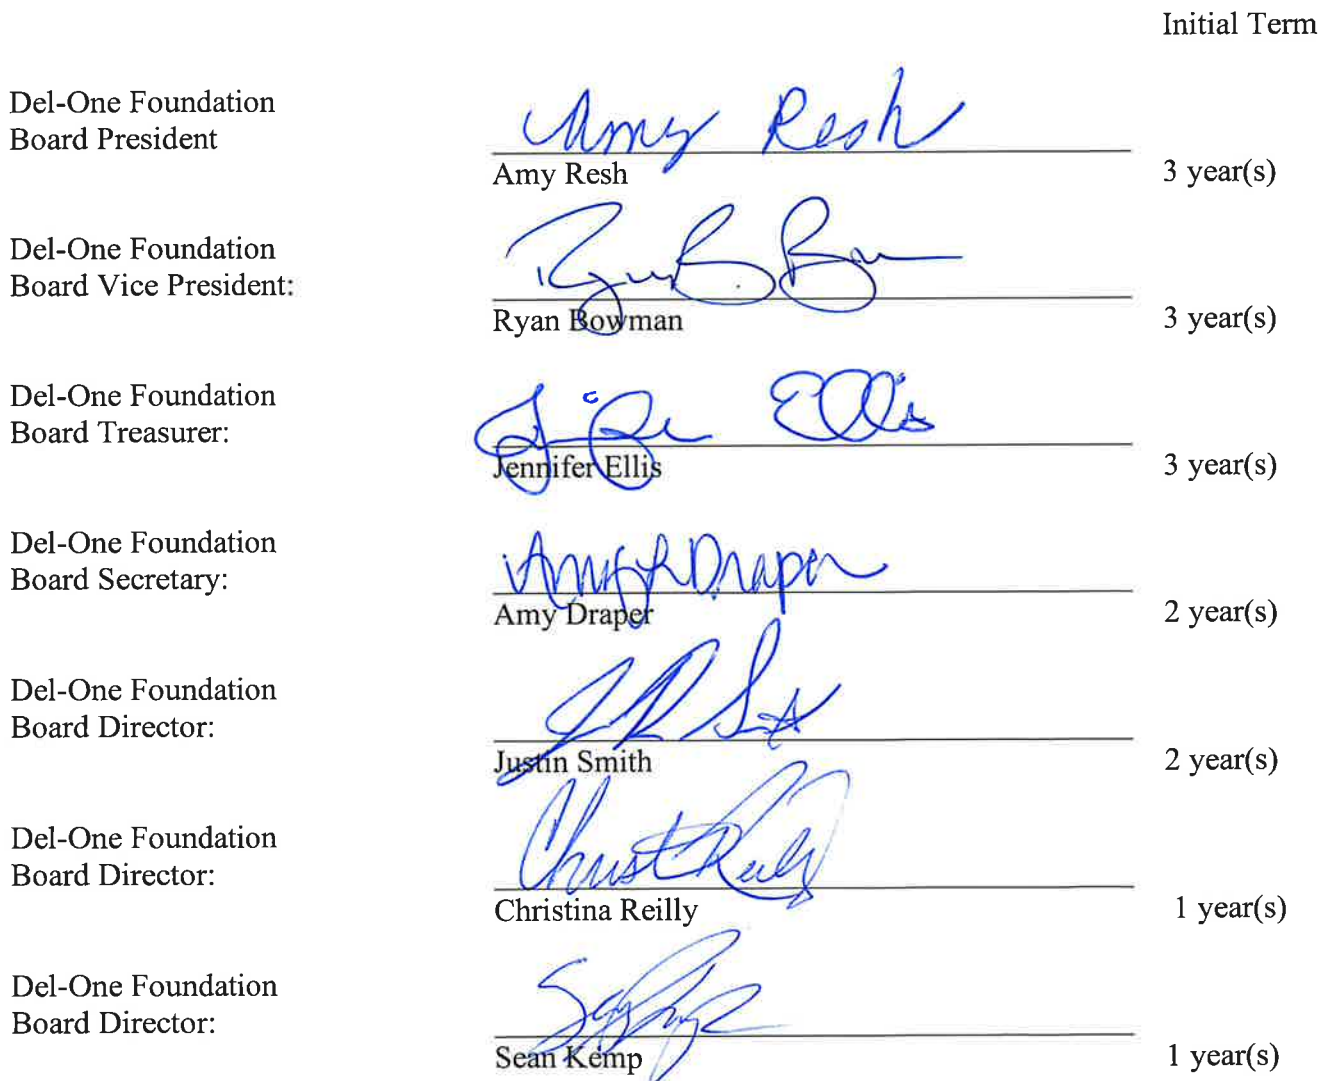 Initial Term
Del-One Foundation
Board President
Amy Resh
Amy Resh
3 year(s)
Del-One Foundation
Board Vice President:
Ryan Bowman
3 year(s)
Del-One Foundation
Board Treasurer:
Ellis
Jennifer Ellis
3 year(s)
Del-One Foundation
Board Secretary:
Amy L Draper
Amy Draper
2 year(s)
Del-One Foundation
Board Director:
Justin Smith
2 year(s)
Del-One Foundation
Board Director:
Christina Reilly
1 year(s)
Del-One Foundation
Board Director:
Sean Kemp
1 year(s)